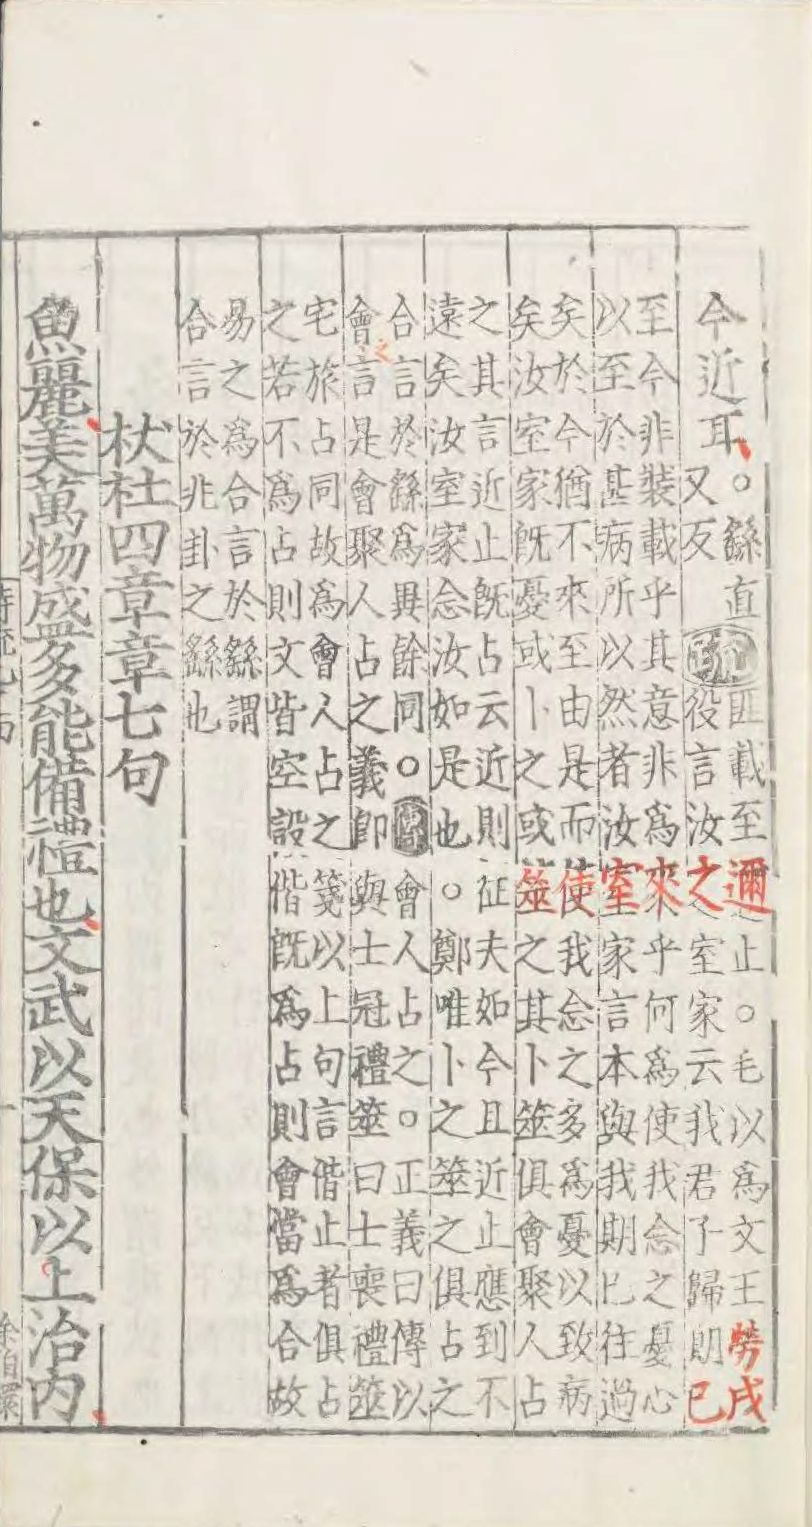 今近耳。繇直又反疏匪載至邇止。毛以為文王勞戍役言汝之室家云我君子歸期已
至今非裝載乎其意非為來乎何為使我念之憂心
以至於甚病所以然者汝室家言本與我期已往過
矣於今猶不來至由是而使我念之多為憂以致病
矣汝室家既憂或卜之或筮之其卜筮俱會聚人占
之其言近止既占云近則征夫如今且近止應到不
遠矣汝室家念汝如是也。鄭唯卜之筮之俱占之
合言於繇為異餘同。會人占之。正義曰傳以
會言是會聚人占之義即與士冠禮筮曰士喪禮筮
宅旅占同故為會人占之箋以上句言偕止者俱占
之若不為占則文皆空設偕既為占則會當為合故
易之為合言於繇謂
合言於兆卦之繇也
杕杜四章章七句
魚麗美萬物盛多能備禮也文武以天保以上治內